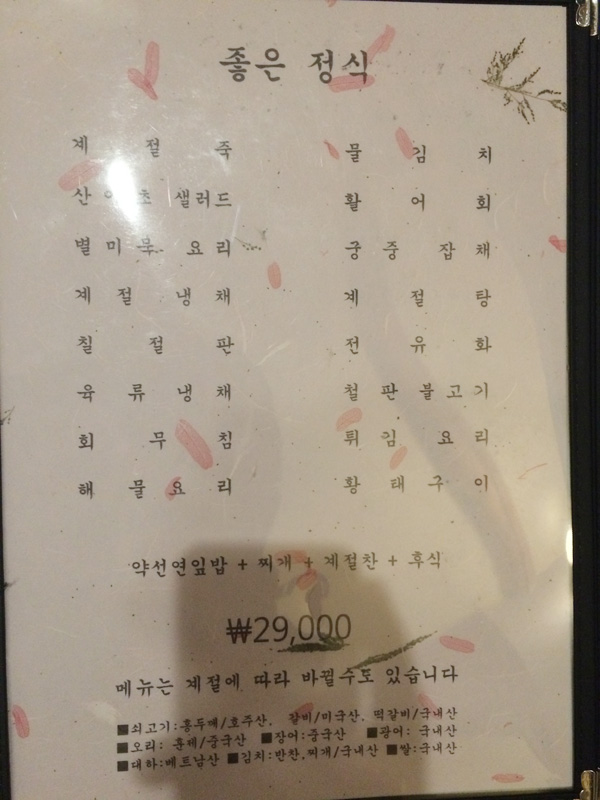 좋은 정식
계절죽 물김치
산야초 샐러드 활어회
별미묵 요리 궁중 잡채
계절냉채 계절탕
칠절판 전유화
육류냉채 철판불고기
회무침 튀김 요리
해물요리 황태구이
약선연잎밥 + 찌개 + 계절찬 + 후식
₩29,000
메뉴는 계절에 따라 바뀔수도 있습니다
■쇠고기:홍두깨/호주산. 갈비/미국산. 떡갈비/국내산
■오리: 훈제/중국산 ■장어:중국산 ■광어: 국내산
■대하:베트남산 ■김치:반찬,찌개/국내산 ■쌀:국내산